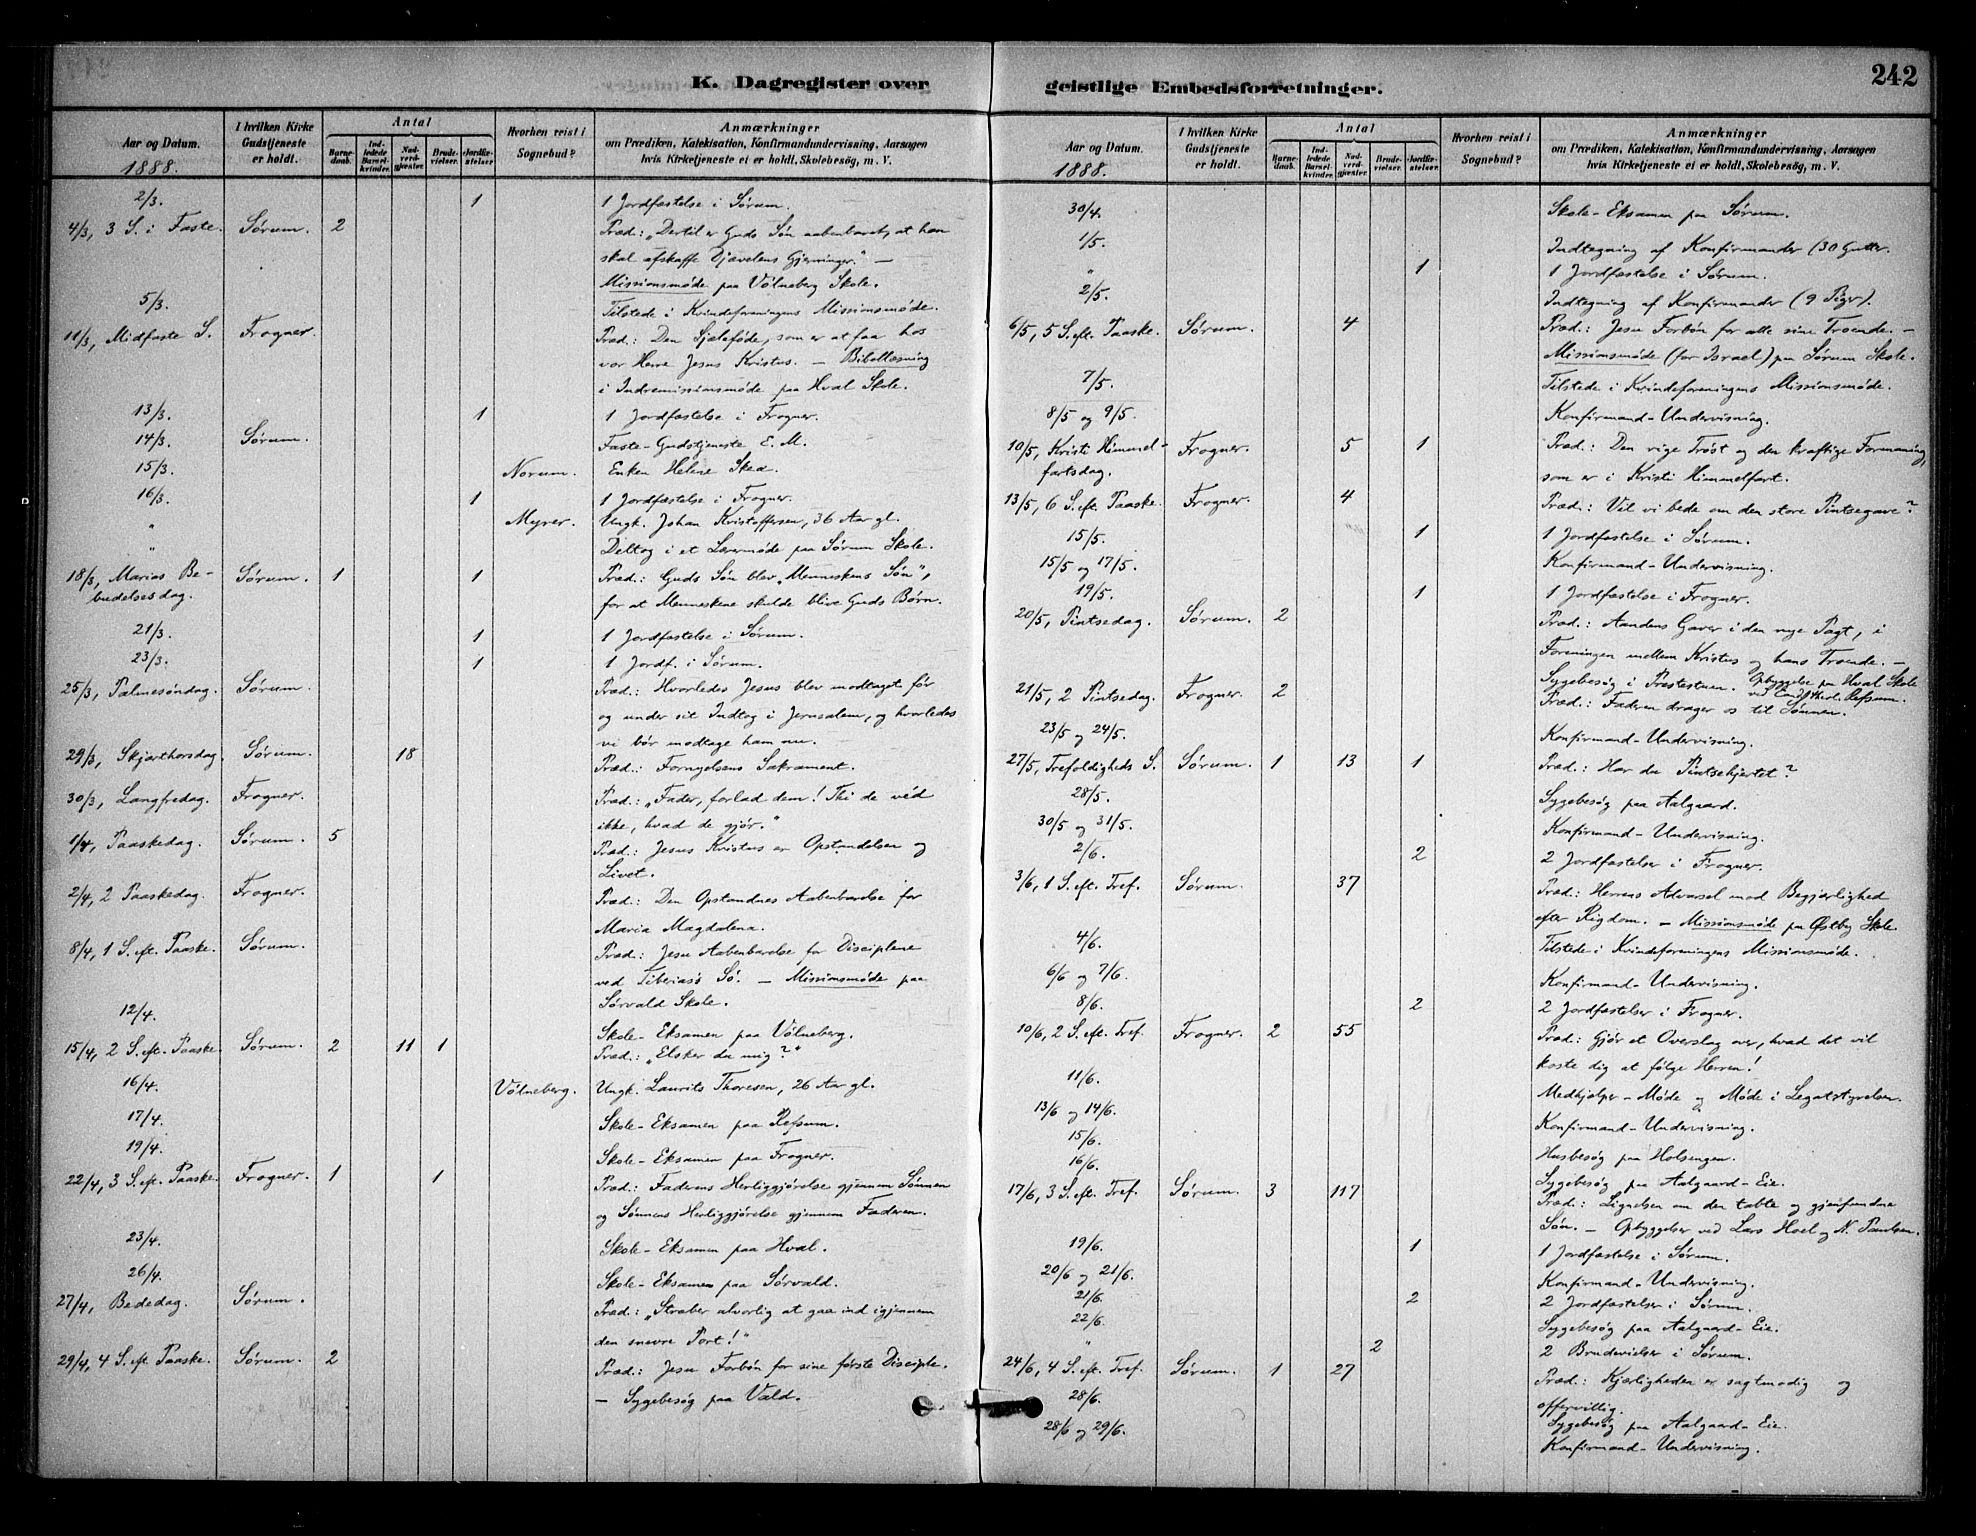 242
K. Dagregister over geistlige Embedsforretninger.
Aar og Datum. 1888. I hvilken Kirke Gudstjeneste er holdt. Antal Barnedaab. Indledede Barselkvinder. Nadverdgjæster. Brudevielser. Jordfæstelser. Hvorhen reist i Sognebud? Anmærkninger om Prædiken, Katekisation, Konfirmandundervisning, Aarsagen hvis Kirketjeneste ei er holdt, Skolebesøg, m. V.
2/3. 1 1 Jordfæstelse i Sørum.
4/3, 3 S. i Faste. Sørum. 2 Præd.: „Dertil er Guds Søn aabenbaret, at han
skal afskaffe Djævelens Gjerninger.“ —
Missionsmøde paa Vølneberg Skole.
5/3. Tilstede i Kvindeforeningens Missionsmøde.
11/3, Midfaste S. Frogner. Præd.: Den Sjæleføde, som er at faa hos
vor Herre Jesus Kristus. — Bibellæsning
i Indremissionsmøde paa Hval Skole.
13/3. 1 1 Jordfæstelse i Frogner.
14/3. Sørum. Faste-Gudstjeneste E. M.
15/3. Norum. Enken Helene Sked.
16/3. 1 1 Jordfæstelse i Frogner.
" Myrer. Ungk. Johan Kristoffersen, 36 Aar gl.
" Deltog i et Lærermøde paa Sørum Skole.
18/3, Marias Be- Sørum. 1 1 Præd.: Guds Søn blev „Menneskens Søn“,
budelsesdag. for at Menneskene skulde blive Guds Børn.
21/3. 1 1 Jordfæstelse i Sørum.
23/3. 1 1 Jordf. i Sørum.
25/3, Palmesøndag. Sørum. Præd.: Hvorledes Jesus blev modtaget før
og under sit Indtog i Jerusalem, og hvorledes
vi bør modtage ham nu.
29/3, Skjærthorsdag. Sørum. 18 Præd.: Fornyelsens Sakrament.
30/3, Langfredag. Frogner. Præd.: „Fader, forlad dem! Thi de véd
ikke, hvad de gjør.“
1/4, Paaskedag. Sørum. 5 Præd.: Jesus Kristus er Opstandelsen og
Livet.
2/4, 2 Paaskedag. Frogner. Præd.: Den Opstandnes Aabenbarelse for
Maria Magdalena.
8/4, 1 S. eft. Paaske. Sørum. Præd.: Jesu Aabenbarelse for Disciplene
ved Tiberias Sø. — Missionsmøde paa
Sørvald Skole.
12/4. Skole-Eksamen paa Vølneberg.
15/4, 2 S. eft. Paaske. Sørum. 2 11 1 Præd.: „Elsker du mig?“
16/4. Vølneberg. Ungk. Laurits Thoresen, 26 Aar gl.
17/4. Skole-Eksamen paa Refsum.
19/4. Skole-Eksamen paa Frogner.
22/4, 3 S. eft. Paaske. Frogner. 1 1 Præd.: Faderens Herliggjørelse gjennem Sønnen
og Sønnens Herliggjørelse gjennem Faderen.
23/4. Skole-Eksamen paa Hval.
26/4. Skole-Eksamen paa Sørvald.
27/4, Bededag. Sørum. Præd.: „Stræber alvorlig at gaa ind igjennem
den snevre Port!“
29/4, 4 S. eft. Paaske. Sørum. 2 Præd.: Jesu Forbøn for sine første Disciple.
— Sygebesøg paa Vald.
Aar og Datum. 1888. I hvilken Kirke Gudstjeneste er holdt. Antal Barnedaab. Indledede Barselkvinder. Nadverdgjæster. Brudevielser. Jordfæstelser. Hvorhen reist i Sognebud? Anmærkninger om Prædiken, Katekisation, Konfirmandundervisning, Aarsagen hvis Kirketjeneste ei er holdt, Skolebesøg, m. V.
30/4. Skole-Eksamen paa Sørum.
1/5. Indtegning af Konfirmander (30 Gutter.
" 1 1 Jordfæstelse i Sørum.
2/5. Indtegning af Konfirmander (9 Piger).
6/5, 5 S. eft. Paaske. Sørum. 4 Præd.: Jesu Forbøn for alle sine Troende. —
Missionsmøde (for Israel) paa Sørum Skole.
7/5. Tilstede i Kvindeforeningens Missionsmøde.
8/5 og 9/5. Konfirmand-Undervisning.
10/5, Kristi Himmel- Frogner. 5 1 Præd.: Den rige Trøst og den kraftige Formaning,
fartsdag. som er i Kristi Himmelfart.
13/5, 6 S. eft. Paaske. Frogner. 4 Præd.: Vil vi bede om den store Pintsegave?
15/5. 1 1 Jordfæstelse i Sørum.
15/5 og 17/5. Konfirmand-Undervisning.
19/5. 1 1 Jordfæstelse i Frogner.
20/5, Pintsedag. Sørum. 2 Præd.: Aandens Gaver i den nye Pagt, i
Foreningen mellem Kristus og hans Troende. —
Sygebesøg i Præstestuen. Opbyggelse paa Hval Skole
ved Refsum.
21/5, 2 Pintsedag. Frogner. 2 Præd.: Faderen drager os til Sønnen.
23/5 og 24/5. Konfirmand-Undervisning.
27/5, Trefoldigheds S. Sørum. 1 13 1 Præd.: Har du Pintsehjertet?
28/5. Sygebesøg paa Aalgaard.
30/5 og 31/5. Konfirmand-Undervisning.
2/6. 2 2 Jordfæstelser i Frogner.
3/6, 1 S. eft. Tref. Sørum. 37 Præd.: Herrens Advarsel mod Begjærlighed
efter Rigdom. — Missionsmøde paa Østby Skole.
4/6. Tilstede i Kvindeforeningens Missionsmøde.
6/6 og 7/6. Konfirmand-Undervisning.
8/6. 2 2 Jordfæstelser i Frogner.
10/6, 2 S. eft. Tref. Frogner. 2 55 Præd.: Gjør et Overslag over, hvad det vil
koste dig at følge Herren!
11/6. Medhjælper-Møde og Møde i Legatstyrelsen.
13/6 og 14/6. Konfirmand-Undervisning.
15/6. Husbesøg paa Holsengen.
16/6. Sygebesøg paa Aalgaard-Eie.
17/6, 3 S. eft. Tref. Sørum. 3 117 Præd.: Lignelsen om den tabte og gjenfundne
Søn. — Opbyggelser ved Lars Hoel og N. Paulsen.
19/6. 1 1 Jordfæstelse i Sørum.
20/6 og 21/6. Konfirmand-Undervisning.
21/6. 2 2 Jordfæstelser i Sørum.
22/6. Sygebesøg paa Aalgaard-Eie.
" 2 2 Brudevielser i Sørum.
24/6, 4 S. eft. Tref. Sørum. 1 27 Præd.: Kjærligheden er sagtmodig og
offervillig.
28/6. Sygebesøg paa Aalgaard-Eie.
28/6 og 29/6. Konfirmand-Undervisning.